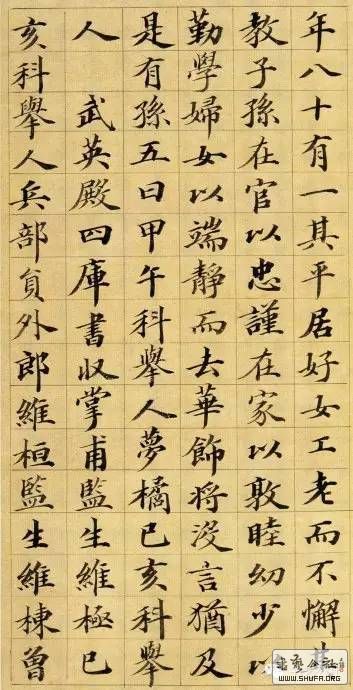 年八十有一其平居好女工老而不懈
教子孫在官以忠謹在家以敦睦幼少以
勤學婦女以端靜而去華飾將沒言猶及
是有孫五曰甲午科舉人夢橘已亥科舉
人武英殿四庫書收掌甫監生維極已
亥科舉人兵部員外郎維桓監生維棟曾
WWW.SHUFA.ORG